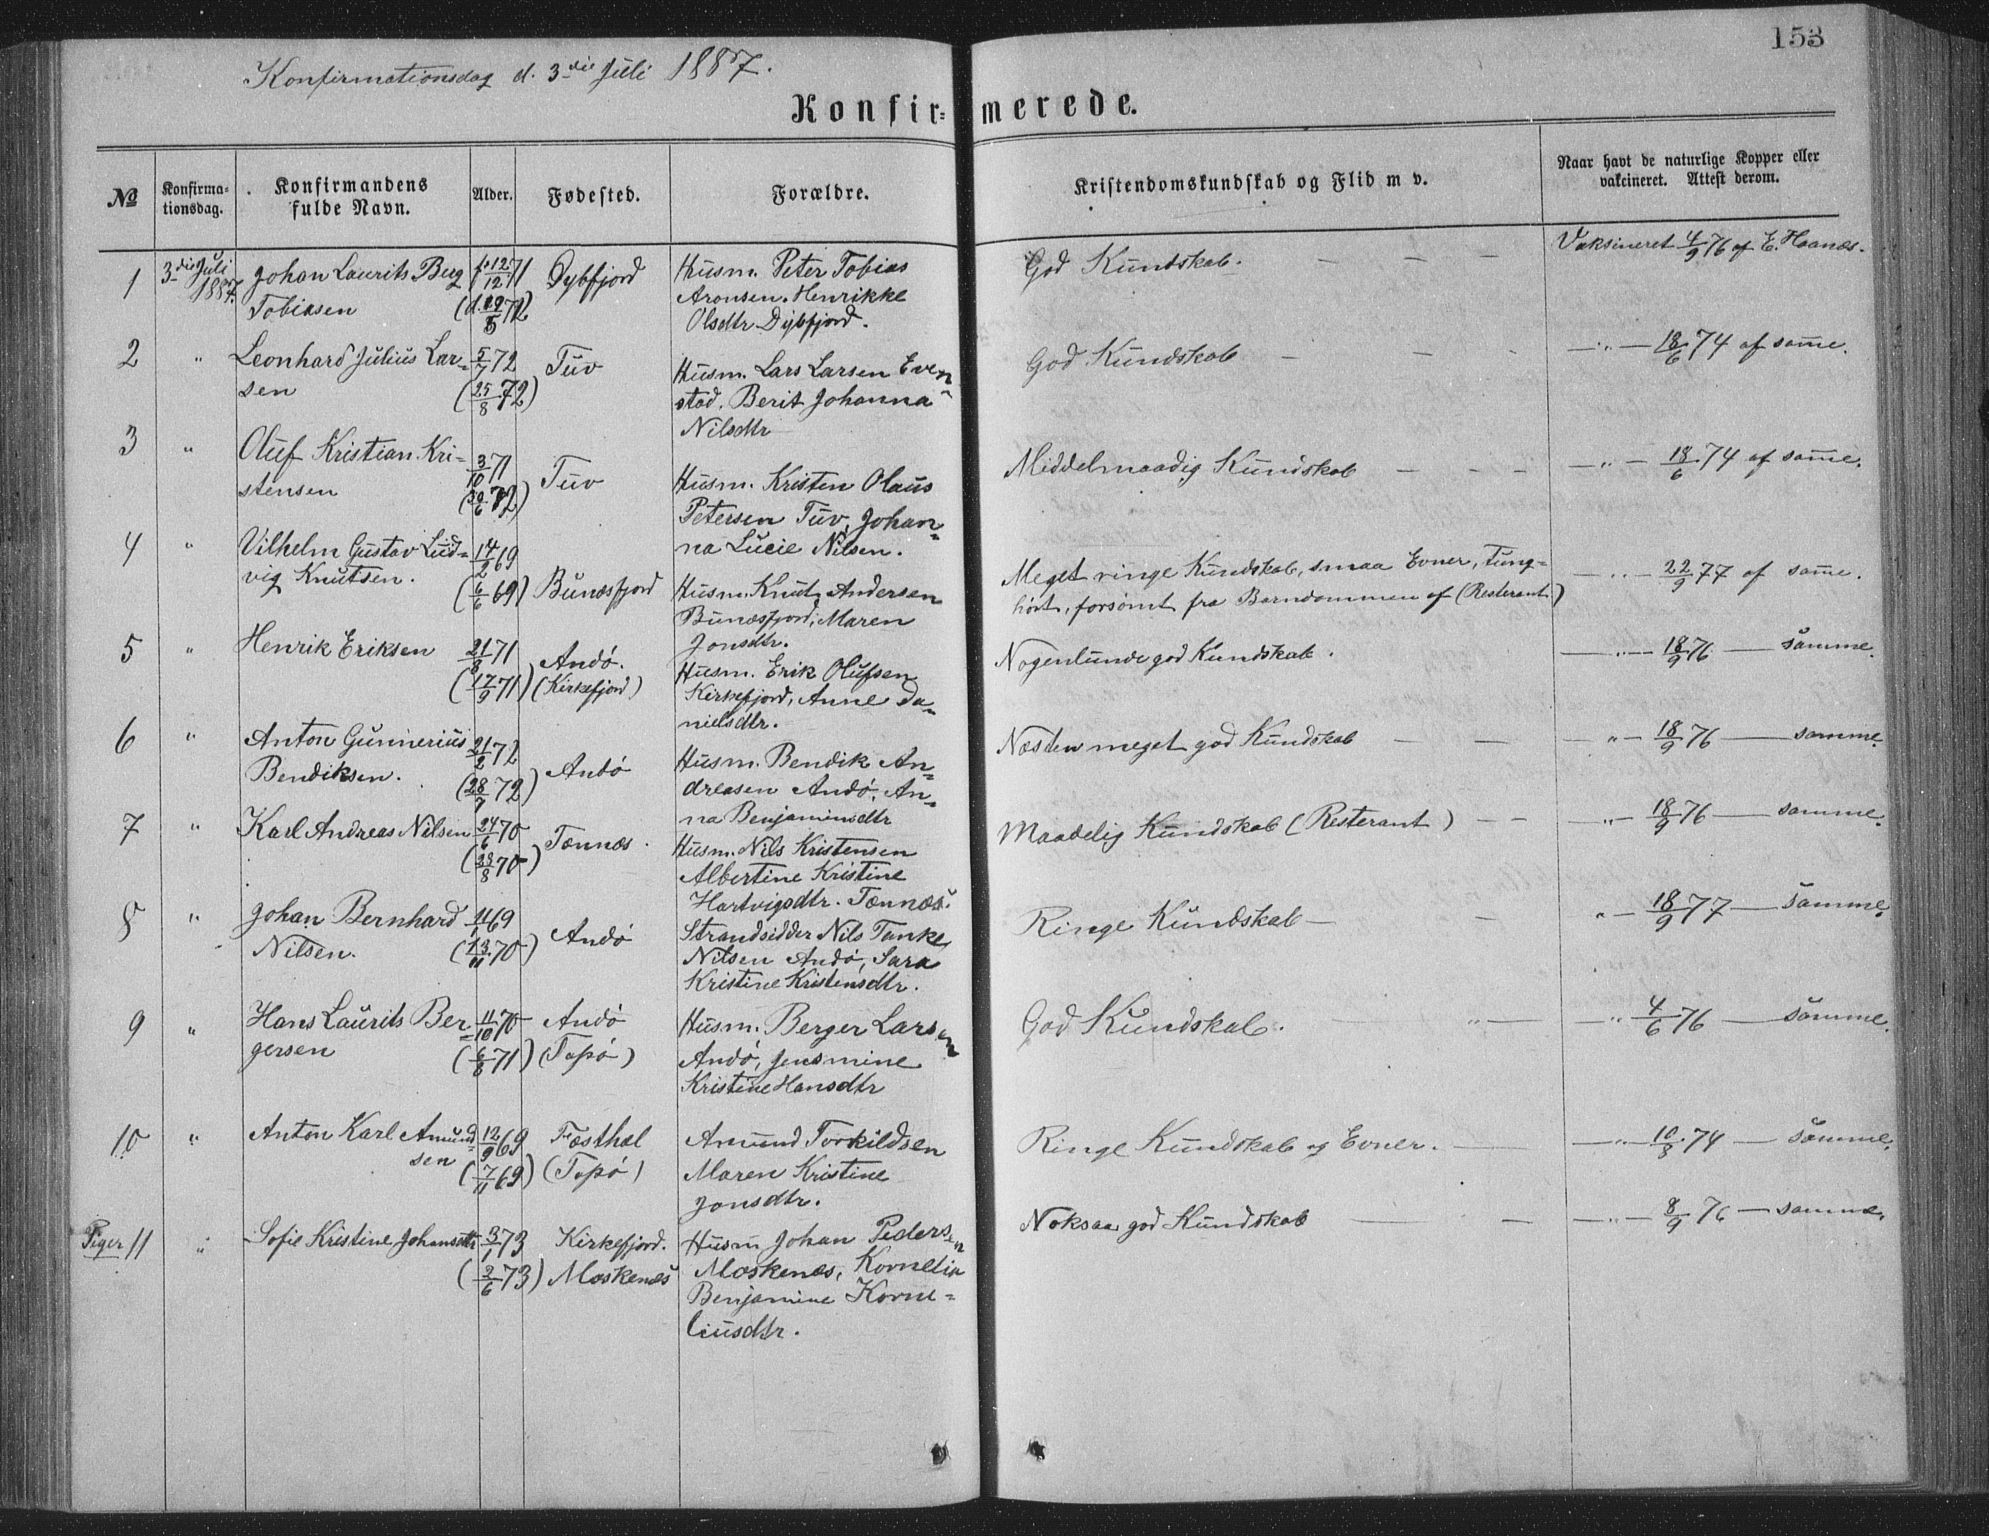 153
Konfirmationsdag d. 3die Juli 1887.
Konfir- merede.
No
Konfirma-
tionsdag.
Konfirmandens
fulde Navn.
Alder.
Fødested.
Forældre.
Kristendomskundskab og Flid m v.
Naar havt de naturlige Kopper eller
vakcineret. Attest derom.
1 3die Juli Johan Laurits Bug f. 12/12 71 Dybfjord Husm. Peter Tobias God Kundskab. — — — Vaksineret 4/9 76 af E. Haanæs.
1887. Tobiasen (d. 19/5 72) Aronsen. Henrikke
Olsdtr Dybfjord.
2 " Leonhard Julius Lar- 5/7 72 Tuv Husm. Lars Larsen Even God Kundskab — — — —"— 18/6 74 af samme.
sen (25/8 72) stad. Berit Johanna
Nilsdtr
3 " Oluf Kristian Kri- 3/10 71 Tuv Husm. Kristen Olaus Middelmaadig Kundskab — — — —"— 18/6 74 af samme.
stensen (30/6 72) Petersen Tuv, Johan=
na Lucie Nilsen.
4 " Vilhelm Gustav Lud- 14/2 69 Bunæsfjord Husm. Knut Andersen Meget ringe Kundskab, smaa Evner, tung= —"— 22/9 77 af samme.
vig Knutsen. (6/6 69) Bunæsfjord, Maren hørt, forsømt fra Barndommen af (Resterant)
Jonsdtr.
5 " Henrik Eriksen 21/8 71 Andø. Husm. Erik Olufsen Nogenlunde god Kundskab. —"— 18/9 76 — samme.
(17/9 71) (Kirkefjord) Kirkefjord, Anne Da=
nielsdtr.
6 " Anton Gunnerius 21/2 72 Andø Husm. Bendik An= Næsten meget god Kundskab — — —"— 18/9 76 — samme.
Bendiksen. (28/7 72) dreasen Andø, An=
na Benjaminsdtr
7 " Karl Andreas Nilsen 24/6 70 Tennæs. Husm. Nils Kristensen Maadelig Kundskab (Resterant) — — —"— 18/9 76 — samme.
(28/8 70) Albertine Kristine
Hartvigsdtr. Tennæs.
8 " Johan Bernhard 1/1 69 Andø Strandsidder Nils Tanke Ringe Kundskab — — "— 18/9 77 — samme.
Nilsen. (13/11 70) Nilsen Andø, Sara
Kristine Kristensdtr.
9 " Hans Laurits Ber= 11/10 70 Andø Husm. Berger Larsen God Kundskab. "— —"— 4/6 76 — samme.
gersen (6/8 71) (Topø) Andø, Jensmine
Kristine Hansdtr
10 " Anton Karl Amund= 12/9 69 Fæsthæl Amund Torkildsen Ringe Kundskab og Evner. — —"— 10/8 74 — samme.
sen (7/11 69) (Topø) Maren Kristine
Jonsdtr.
Piger 11 " Sofie Kristine Johansdtr 3/1 73 Kirkefjord. Husm Johan Pedersen Noksaa god Kundskab — — —"— 8/9 76 — samme.
(2/6 73) Moskenæs Moskenæs, Kornelia
Benjamine Korne=
liusdtr.